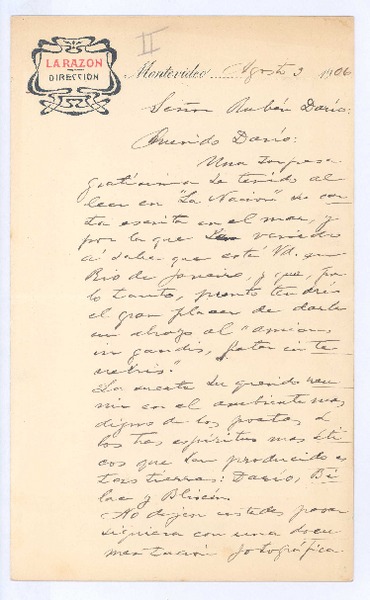 II
LA RAZON
DIRECCION
Montevideo Agosto 3 1906
Señor Rubén Darío:
Querido Darío:
Una sorpresa
gratísima he tenido al
leer en "La Nación" su car
ta escrita en el mar, y
por la que he venido
á saber que está Vd. en
Rio de Janeiro, y que, por
lo tanto, pronto tendré
el gran placer de darle
un abrazo al
La suerte ha querido reu
nir en el ambiente mas
digno de los poetas, á
los tres espíritus mas
que han producido e
tas tierras: Darío, Bi
lac y Blixén.
No dejen ustedes pasar
siquiera con una docu
mentación fotográfica